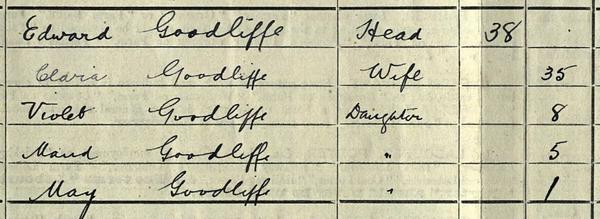 Edward Goodliffe Head 38
Clara Goodliffe Wife 35
Violet Goodliffe Daughter 8
Maud Goodliffe " 5
May Goodliffe " 1